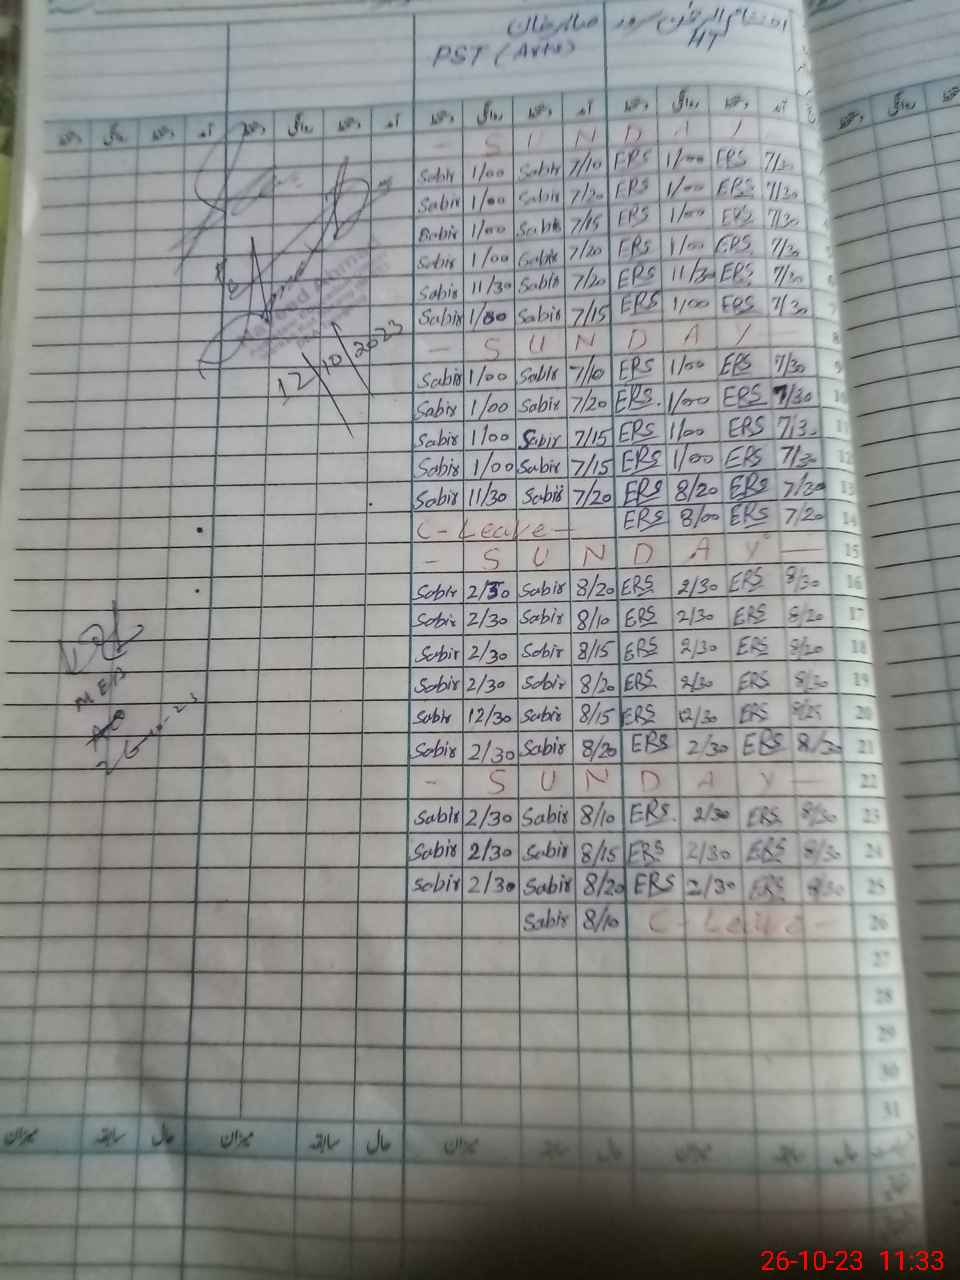 صابر خان
PST (Arts)
HT
آمد دستخط روانگی دستخط آمد دستخط روانگی دستخط
— S U N D A Y —
7/30 ERS 1/00 ERS 7/10 Sabir 1/00 Sabir
7/30 ERS 1/00 ERS 7/20 Sabir 1/00 Sabir
7/30 ERS 1/00 ERS 7/15 Sabir 1/00 Sabir
7/30 ERS 1/00 ERS 7/20 Sabir 1/00 Sabir
7/30 ERS 11/30 ERS 7/20 Sabir 11/30 Sabir
7/30 ERS 1/00 ERS 7/15 Sabir 1/00 Sabir
8 — S U N D A Y —
9 7/30 ERS 1/00 ERS 7/10 Sabir 1/00 Sabir
10 7/30 ERS 1/00 ERS 7/20 Sabir 1/00 Sabir
11 7/30 ERS 1/00 ERS 7/15 Sabir 1/00 Sabir
12 7/30 ERS 1/00 ERS 7/15 Sabir 1/00 Sabir
13 7/30 ERS 8/20 ERS 7/20 Sabir 11/30 Sabir
14 7/20 ERS 8/00 ERS C-Leave
15 — S U N D A Y —
16 8/30 ERS 2/30 ERS 8/20 Sabir 2/30 Sabir
17 8/20 ERS 2/30 ERS 8/10 Sabir 2/30 Sabir
18 8/20 ERS 2/30 ERS 8/15 Sabir 2/30 Sabir
19 8/30 ERS 2/30 ERS 8/20 Sabir 2/30 Sabir
20 8/25 ERS 12/30 ERS 8/15 Sabir 12/30 Sabir
21 8/30 ERS 2/30 ERS 8/20 Sabir 2/30 Sabir
22 — S U N D A Y —
23 8/30 ERS 2/30 ERS 8/10 Sabir 2/30 Sabir
24 8/30 ERS 2/30 ERS 8/15 Sabir 2/30 Sabir
25 8/30 ERS 2/30 ERS 8/20 Sabir 2/30 Sabir
26 C-Leave 8/10 Sabir
27
28
29
30
31
حال سابقہ میزان حال سابقہ میزان حال سابقہ میزان حال سابقہ میزان
12/10/2023
26-10-23 11:33